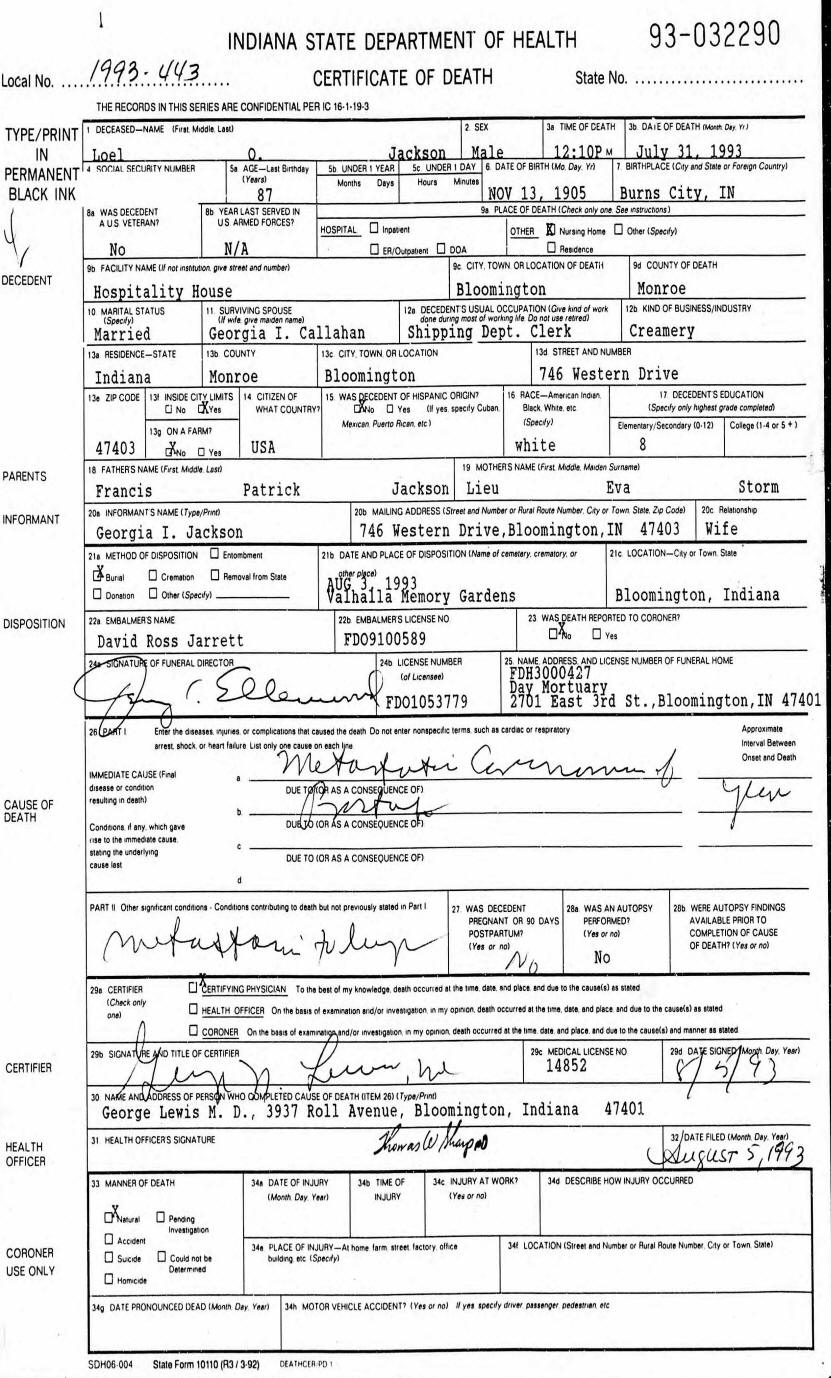 1
INDIANA STATE DEPARTMENT OF HEALTH
93-032290
Local No. ....1993-443.......
CERTIFICATE OF DEATH
State No. ...........................
THE RECORDS IN THIS SERIES ARE CONFIDENTIAL PER IC 16-1-19-3
TYPE/PRINT
IN
PERMANENT
BLACK INK
1 DECEASED—NAME (First, Middle, Last)
Loel O. Jackson
2 SEX
Male
3a TIME OF DEATH
12:10P M
3b DATE OF DEATH (Month, Day, Yr)
July 31, 1993
4 SOCIAL SECURITY NUMBER
5a AGE—Last Birthday
(Years)
87
5b UNDER 1 YEAR
Months Days
5c UNDER 1 DAY
Hours Minutes
6 DATE OF BIRTH (Mo, Day, Yr)
NOV 13, 1905
7 BIRTHPLACE (City and State or Foreign Country)
Burns City, IN
DECEDENT
8a WAS DECEDENT
A U.S. VETERAN?
No
8b YEAR LAST SERVED IN
U.S. ARMED FORCES?
N/A
9a PLACE OF DEATH (Check only one. See instructions)
HOSPITAL ☐ Inpatient
☐ ER/Outpatient ☐ DOA
OTHER ☒ Nursing Home ☐ Other (Specify)
☐ Residence
9b FACILITY NAME (If not institution, give street and number)
Hospitality House
9c CITY, TOWN OR LOCATION OF DEATH
Bloomington
9d COUNTY OF DEATH
Monroe
10 MARITAL STATUS
(Specify)
Married
11 SURVIVING SPOUSE
(If wife, give maiden name)
Georgia I. Callahan
12a DECEDENT'S USUAL OCCUPATION (Give kind of work
done during most of working life. Do not use retired)
Shipping Dept. Clerk
12b KIND OF BUSINESS/INDUSTRY
Creamery
13a RESIDENCE—STATE
Indiana
13b COUNTY
Monroe
13c CITY, TOWN, OR LOCATION
Bloomington
13d STREET AND NUMBER
746 Western Drive
13e ZIP CODE
47403
13f INSIDE CITY LIMITS
☐ No ☒ Yes
13g ON A FARM?
☒ No ☐ Yes
14 CITIZEN OF
WHAT COUNTRY?
USA
15 WAS DECEDENT OF HISPANIC ORIGIN?
☒ No ☐ Yes (If yes, specify Cuban,
Mexican, Puerto Rican, etc)
16 RACE—American Indian,
Black, White, etc
(Specify)
white
17 DECEDENT'S EDUCATION
(Specify only highest grade completed)
Elementary/Secondary (0-12)
8
College (1-4 or 5 +)
PARENTS
18 FATHER'S NAME (First, Middle, Last)
Francis Patrick Jackson
19 MOTHER'S NAME (First, Middle, Maiden Surname)
Lieu Eva Storm
INFORMANT
20a INFORMANT'S NAME (Type/Print)
Georgia I. Jackson
20b MAILING ADDRESS (Street and Number or Rural Route Number, City or Town, State, Zip Code)
746 Western Drive,Bloomington,IN 47403
20c Relationship
Wife
DISPOSITION
21a METHOD OF DISPOSITION ☐ Entombment
☒ Burial ☐ Cremation ☐ Removal from State
☐ Donation ☐ Other (Specify)
21b DATE AND PLACE OF DISPOSITION (Name of cemetery, crematory, or
other place)
AUG 3, 1993
Valhalla Memory Gardens
21c LOCATION—City or Town, State
Bloomington, Indiana
22a EMBALMER'S NAME
David Ross Jarrett
22b EMBALMER'S LICENSE NO
FDO9100589
23 WAS DEATH REPORTED TO CORONER?
☒ No ☐ Yes
24a SIGNATURE OF FUNERAL DIRECTOR
24b LICENSE NUMBER
(of Licensee)
FDO1053779
25 NAME, ADDRESS, AND LICENSE NUMBER OF FUNERAL HOME
FDH3000427
Day Mortuary
2701 East 3rd St.,Bloomington,IN 47401
CAUSE OF
DEATH
26 PART I Enter the diseases, injuries, or complications that caused the death Do not enter nonspecific terms, such as cardiac or respiratory
arrest, shock, or heart failure. List only one cause on each line
Approximate
Interval Between
Onset and Death
IMMEDIATE CAUSE (Final
disease or condition
resulting in death)
a Metastatic Carcinoma of
DUE TO (OR AS A CONSEQUENCE OF)
b Prostate
DUE TO (OR AS A CONSEQUENCE OF)
Conditions, if any, which gave
rise to the immediate cause,
stating the underlying
cause last
c
DUE TO (OR AS A CONSEQUENCE OF)
d
PART II Other significant conditions - Conditions contributing to death but not previously stated in Part I
27. WAS DECEDENT
PREGNANT OR 90 DAYS
POSTPARTUM?
(Yes or no)
No
28a WAS AN AUTOPSY
PERFORMED?
(Yes or no)
No
28b WERE AUTOPSY FINDINGS
AVAILABLE PRIOR TO
COMPLETION OF CAUSE
OF DEATH? (Yes or no)
CERTIFIER
29a CERTIFIER
(Check only
one)
☒ CERTIFYING PHYSICIAN To the best of my knowledge, death occurred at the time, date, and place, and due to the cause(s) as stated
☐ HEALTH OFFICER On the basis of examination and/or investigation, in my opinion, death occurred at the time, date, and place, and due to the cause(s) as stated
☐ CORONER On the basis of examination and/or investigation, in my opinion, death occurred at the time, date, and place, and due to the cause(s) and manner as stated
29b SIGNATURE AND TITLE OF CERTIFIER
29c MEDICAL LICENSE NO
14852
29d DATE SIGNED (Month, Day, Year)
8/5/93
30 NAME AND ADDRESS OF PERSON WHO COMPLETED CAUSE OF DEATH (ITEM 26) (Type/Print)
George Lewis M. D., 3937 Roll Avenue, Bloomington, Indiana 47401
HEALTH
OFFICER
31 HEALTH OFFICER'S SIGNATURE
Thomas W Sharp MD
32 DATE FILED (Month, Day, Year)
August 5, 1993
CORONER
USE ONLY
33 MANNER OF DEATH
☒ Natural ☐ Pending
Investigation
☐ Accident
☐ Suicide ☐ Could not be
Determined
☐ Homicide
34a DATE OF INJURY
(Month, Day, Year)
34b TIME OF
INJURY
34c INJURY AT WORK?
(Yes or no)
34d DESCRIBE HOW INJURY OCCURRED
34e PLACE OF INJURY—At home, farm, street, factory, office
building, etc (Specify)
34f LOCATION (Street and Number or Rural Route Number, City or Town, State)
34g DATE PRONOUNCED DEAD (Month, Day, Year)
34h MOTOR VEHICLE ACCIDENT? (Yes or no) If yes, specify driver, passenger, pedestrian, etc
SDH06-004 State Form 10110 (R3 / 3-92) DEATHCER-PD 1